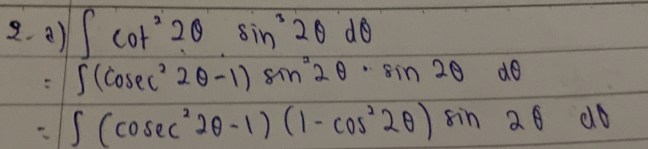 2. a) ∫ cot² 2θ sin³ 2θ dθ
= ∫(cosec² 2θ-1) sin²2θ · sin 2θ dθ
= ∫ (cosec²2θ-1) (1-cos²2θ) sin 2θ dθ